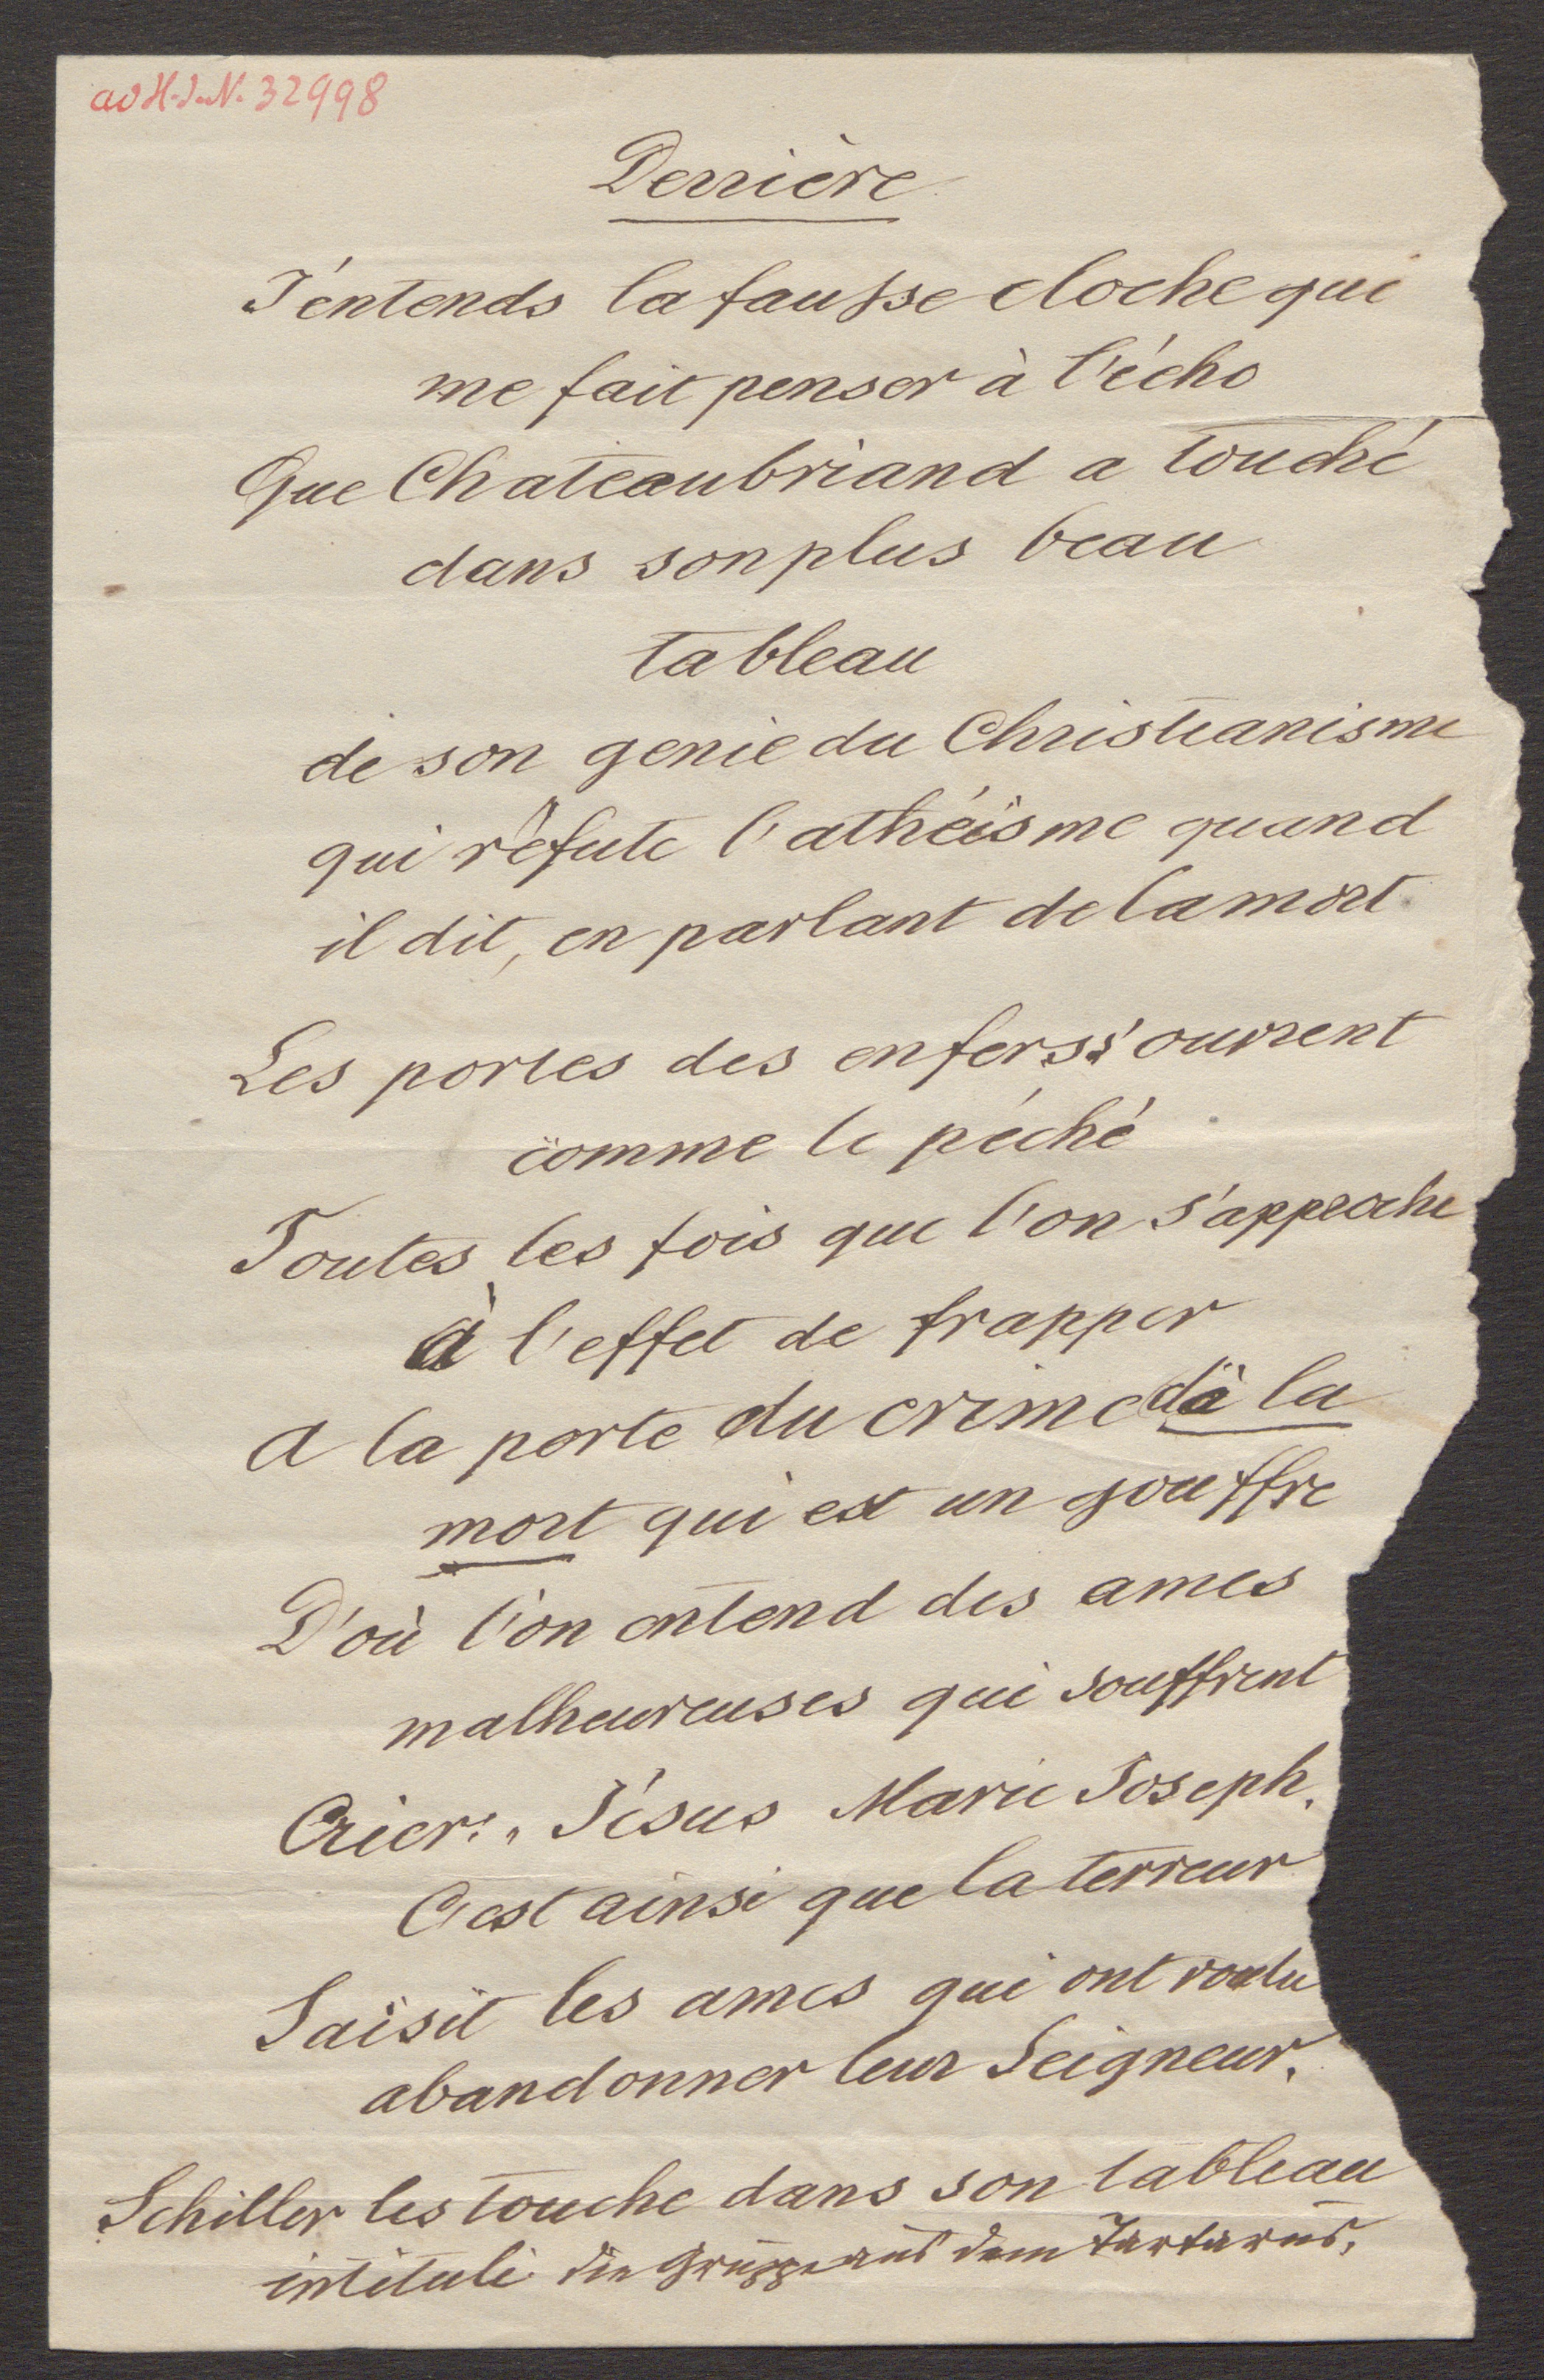 ad H.I.N. 32998
Derrière
J'entends la fausse cloche qui
me fait penser à l'écho
Que Chateaubriand a touché
dans son plus beau
tableau
de son genie du Christianisme
qui réfute l'athéisme quand
il dit, en parlant de la mort
Les portes des enfers s'ouvrent
comme le péché
Toutes les fois que l'on s'approche
à l'effet de frapper
A la porte du crime dà la
mort qui est un gouffre
D'où l'on entend des ames
malheureuses qui souffrent
Crier: „Jésus Marie Joseph.
C'est ainsi que la terreur
Saisit les ames qui ont voulu
abandonner leur Seigneur.
Schiller les touche dans son tableau
intitulé die Gruppe aus dem Tartarus.